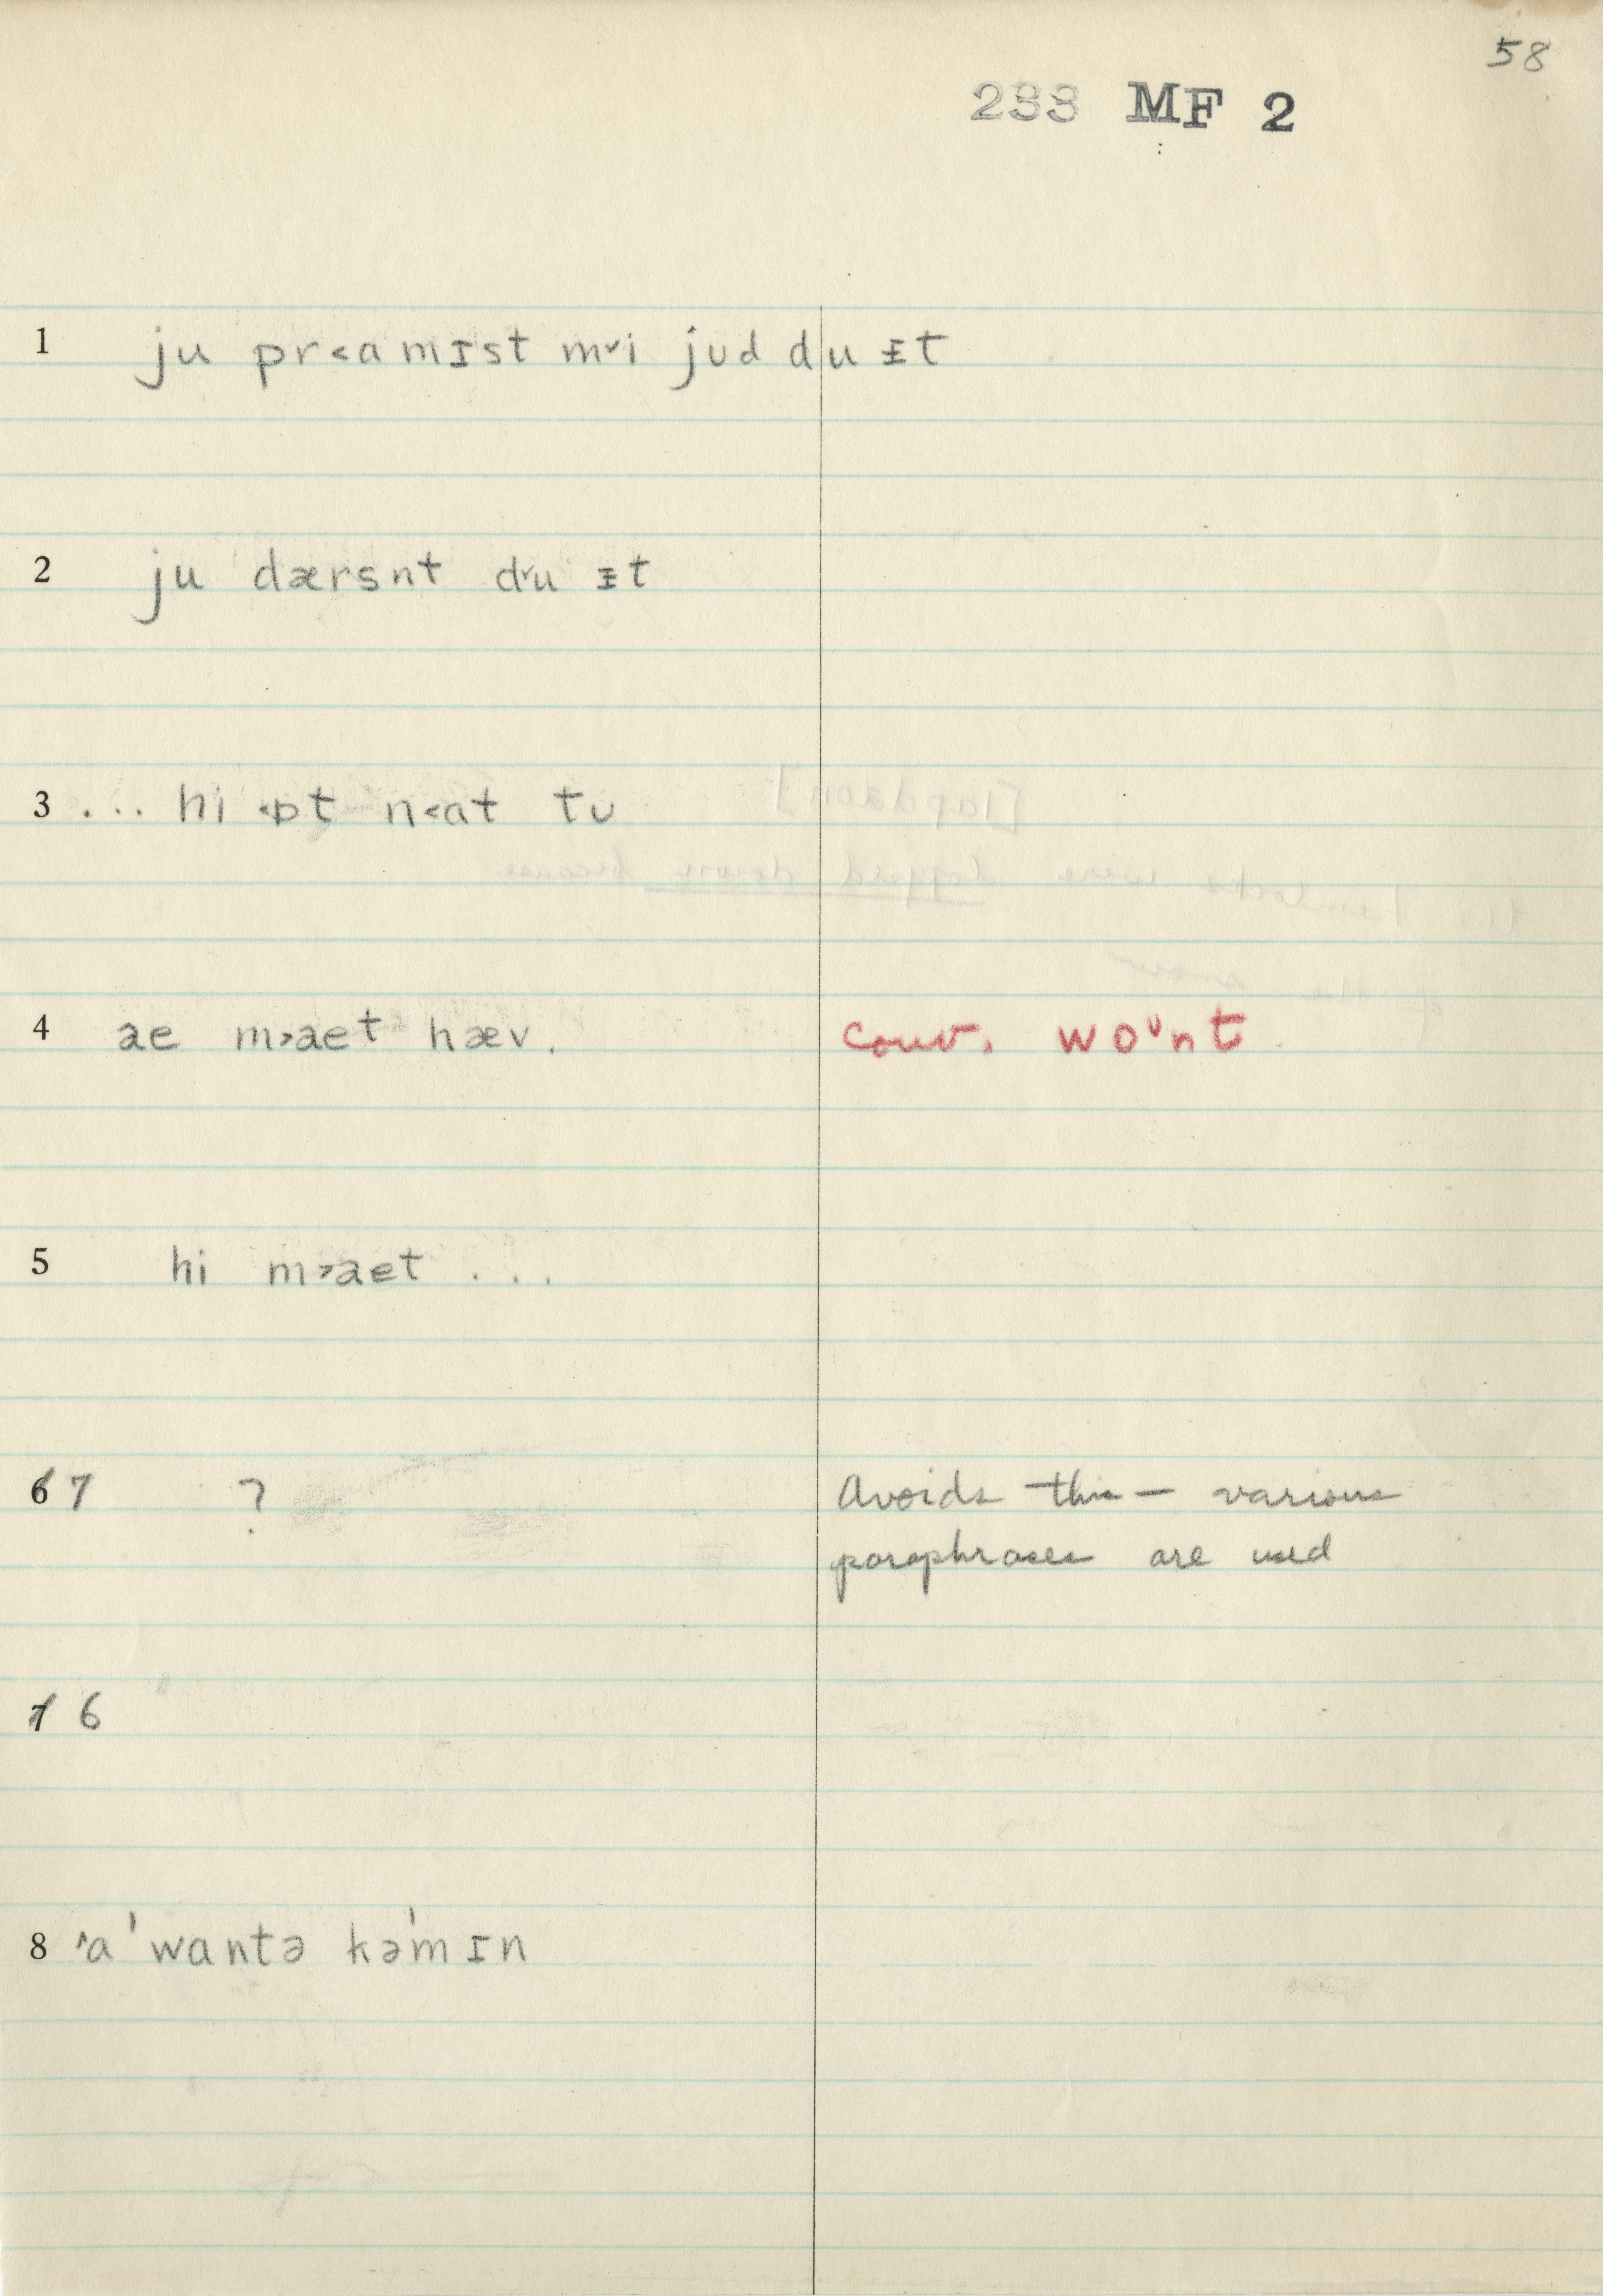 58
233 MF 2
1 ju pr˂amɪst m˅i jud du ᵻt
2 ju dærsnt d˅u ᵻt
3 ... hi ˂ɒt n˂at tʊ
4 ae m˃aet hæv. conv. woᶷnt
5 hi m˃aet ...
6 7 ? Avoids this — various
paraphrases are used
7 6
8 ˄a ˈwantə kəˈmɪn